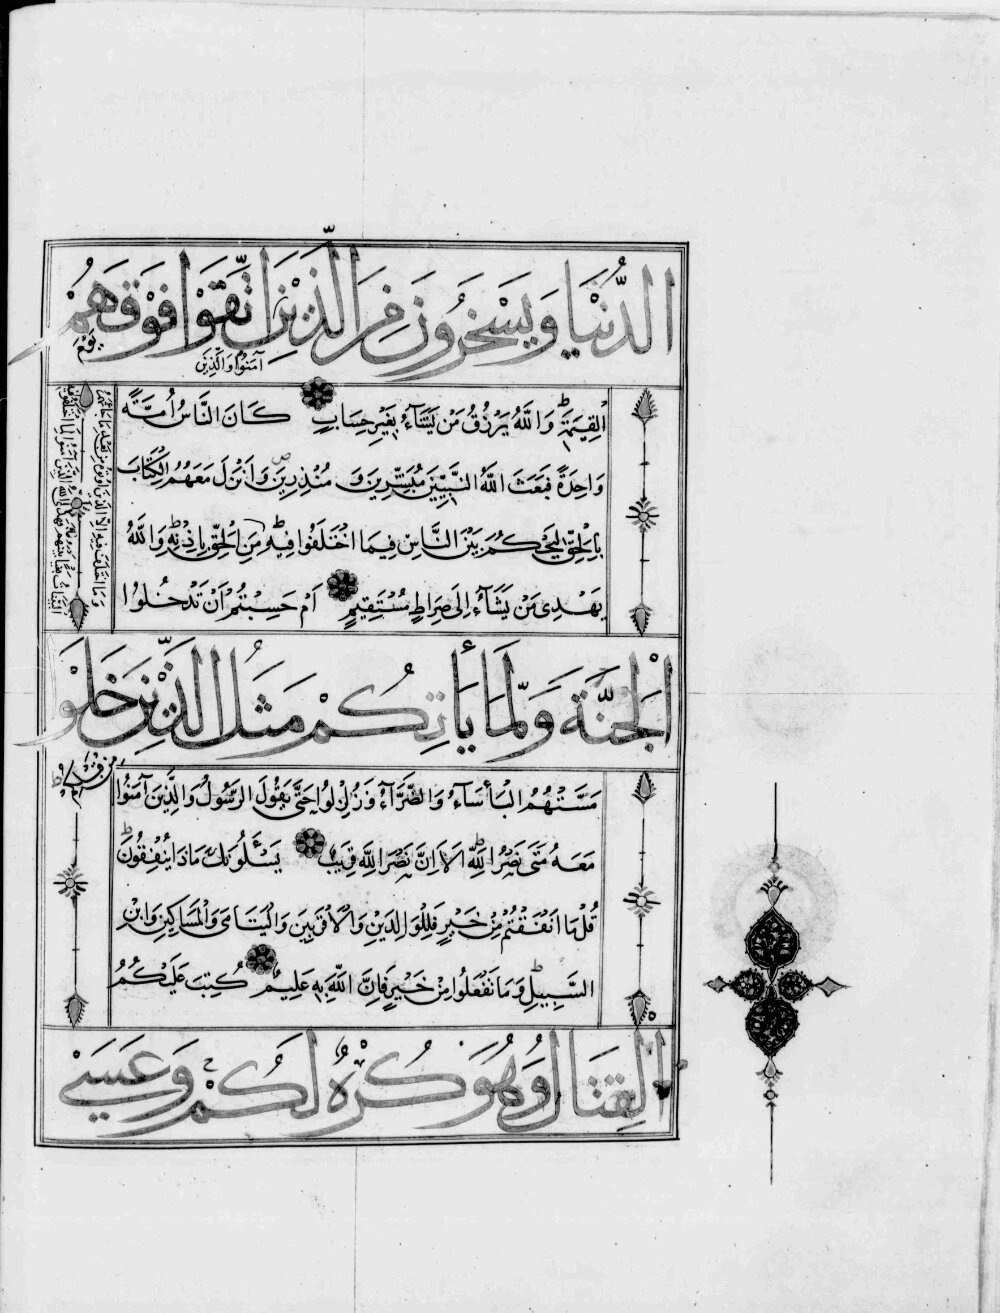 الدُّنْيَا وَيَسْخَرُونَ مِنَ الَّذِينَ اتَّقَوْا فَوْقَهُمْ
يَوْمَ
آمَنُوا وَالَّذِينَ
الْقِيٰمَةِ وَاللَّهُ يَرْزُقُ مَنْ يَشَآءُ بِغَيْرِ حِسَابٍ كَانَ النَّاسُ أُمَّةً
وَاحِدَةً فَبَعَثَ اللَّهُ النَّبِيِّينَ مُبَشِّرِينَ وَ مُنْذِرِينَ وَأَنْزَلَ مَعَهُمُ الْكِتَابَ
بِالْحَقِّ لِيَحْكُمَ بَيْنَ النَّاسِ فِيمَا اخْتَلَفُوا فِيهِ مِنَ الْحَقِّ بِإِذْنِهِ وَاللَّهُ
يَهْدِى مَنْ يَشَآءُ إِلَى صِرَاطٍ مُسْتَقِيمٍ اَمْ حَسِبْتُمْ اَنْ تَدْخُلُوا
وَمَا اخْتَلَفَ فِيهِ إِلَّا الَّذِينَ أُوتُوهُ مِنْ بَعْدِ مَا جَاءَتْهُمُ
الْبَيِّنَاتُ بَغْيًا بَيْنَهُمْ فَهَدَى اللَّهُ الَّذِينَ آمَنُوا لِمَا اخْتَلَفُوا
الْجَنَّةَ وَلَمَّا يَأْتِكُمْ مَثَلُ الَّذِينَ خَلَوْا
مِنْ قَبْلِكُمْ
مَسَّتْهُمُ الْبَأْسَآءُ وَالضَّرَّآءُ وَزُلْزِلُوا حَتَّى يَقُولَ الرَّسُولُ وَالَّذِينَ آمَنُوا
مَعَهُ مَتَى نَصْرُ اللَّهِ اَلَا اِنَّ نَصْرَ اللَّهِ قَرِيبٌ يَسْأَلُونَكَ مَاذَا يُنْفِقُونَ
قُلْ مَا اَنْفَقْتُمْ مِنْ خَيْرٍ فَلِلْوَالِدَيْنِ وَالْاَقْرَبِينَ وَالْيَتَامَى وَالْمَسَاكِينِ وَابْنِ
السَّبِيلِ وَمَا تَفْعَلُوا مِنْ خَيْرٍ فَاِنَّ اللَّهَ بِهِ عَلِيمٌ كُتِبَ عَلَيْكُمُ
الْقِتَالُ وَهُوَ كُرْهٌ لَكُمْ وَعَسَى